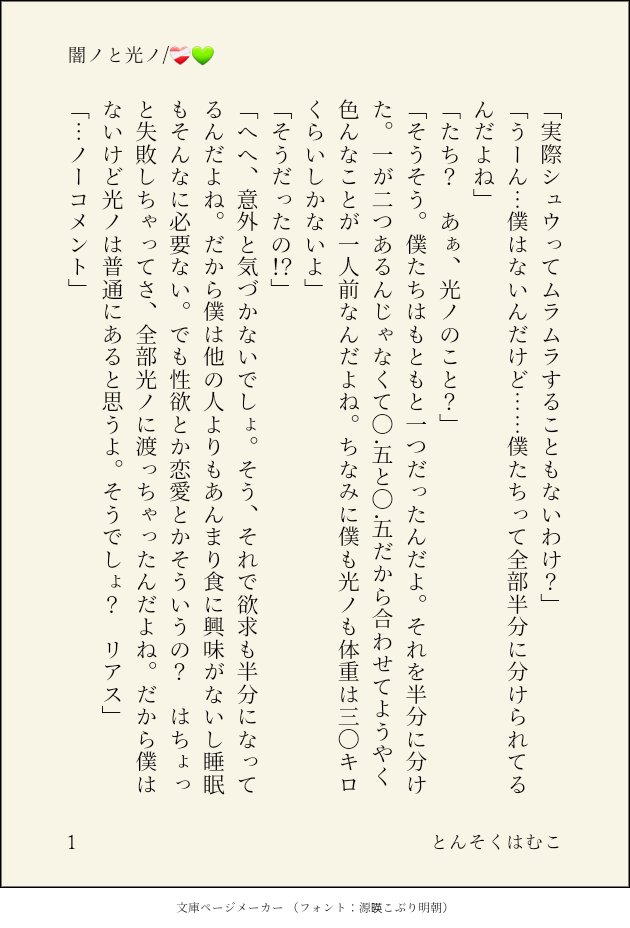 闇ノと光ノ/❤️‍🩹💚
「実際シュウってムラムラすることもないわけ？」
「うーん…僕はないんだけど……僕たちって全部半分に分けられてる
んだよね」
「たち？　あぁ、光ノのこと？」
「そうそう。僕たちはもともと一つだったんだよ。それを半分に分け
た。一が二つあるんじゃなくて〇.五と〇.五だから合わせてようやく
色んなことが一人前なんだよね。ちなみに僕も光ノも体重は三〇キロ
くらいしかないよ」
「そうだったの!?」
「へへ、意外と気づかないでしょ。そう、それで欲求も半分になって
るんだよね。だから僕は他の人よりもあんまり食に興味がないし睡眠
もそんなに必要ない。でも性欲とか恋愛とかそういうの？　はちょっ
と失敗しちゃってさ、全部光ノに渡っちゃったんだよね。だから僕は
ないけど光ノは普通にあると思うよ。そうでしょ？　リアス」
「…ノーコメント」
1
とんそくはむこ
文庫ページメーカー （フォント：源暎こぶり明朝）